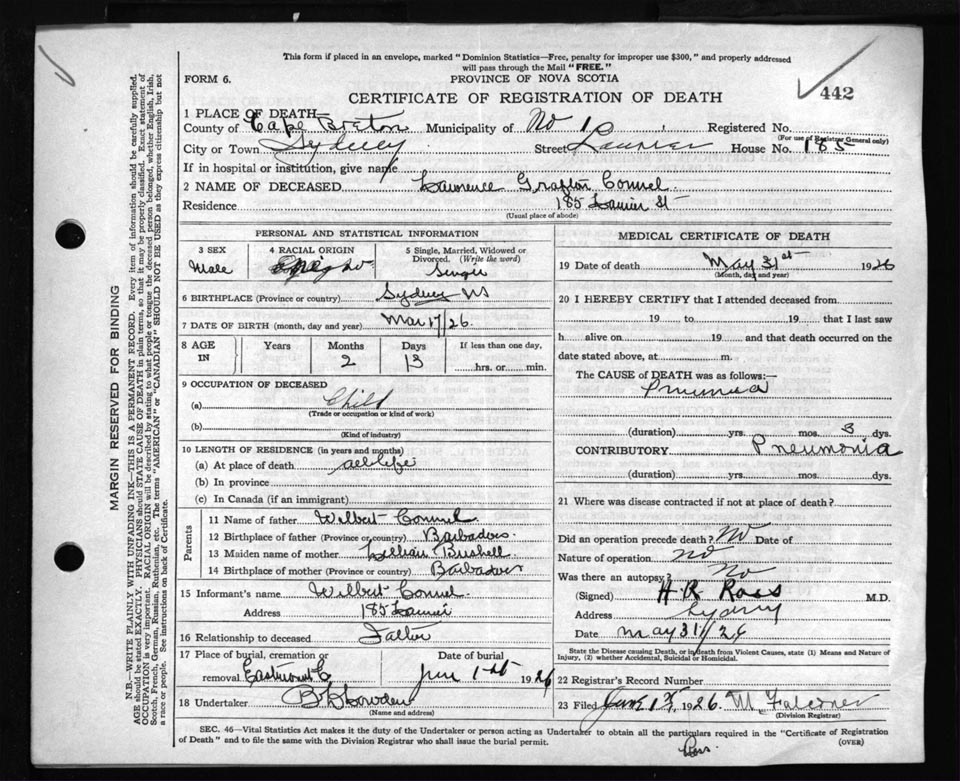 This form if placed in an envelope, marked "Dominion Statistics—Free, penalty for improper use $300," and properly addressed
will pass through the Mail "FREE."
FORM 6.
PROVINCE OF NOVA SCOTIA
CERTIFICATE OF REGISTRATION OF DEATH
442
1 PLACE OF DEATH
County of Cape Breton Municipality of No Registered No.
(For use of Registrar General only)
City or Town Sydney Street Laurier House No. 185
If in hospital or institution, give name
2 NAME OF DECEASED Lawrence Grafton Connel
Residence 185 Laurier St
(Usual place of abode)
PERSONAL AND STATISTICAL INFORMATION
3 SEX 4 RACIAL ORIGIN 5 Single, Married, Widowed or
Divorced. (Write the word)
Male Negro Single
6 BIRTHPLACE (Province or country) Sydney NS
7 DATE OF BIRTH (month, day and year) Mar 17/26
8 AGE IN Years Months Days If less than one day,
2 13 hrs. or min.
9 OCCUPATION OF DECEASED
(a) Child
(Trade or occupation or kind of work)
(b)
(Kind of industry)
10 LENGTH OF RESIDENCE (in years and months)
(a) At place of death all life
(b) In province
(c) In Canada (if an immigrant)
Parents
11 Name of father Wilbert Connel
12 Birthplace of father (Province or country) Barbados
13 Maiden name of mother Lillian Bushell
14 Birthplace of mother (Province or country) Barbados
15 Informant's name Wilbert Connel
Address 185 Laurier
16 Relationship to deceased Father
17 Place of burial, cremation or Date of burial
removal Eastmount C June 1st 1926
18 Undertaker
(Name and address)
MEDICAL CERTIFICATE OF DEATH
19 Date of death May 31st 1926
(Month, day and year)
20 I HEREBY CERTIFY that I attended deceased from
19 to 19 that I last saw
h alive on 19 and that death occurred on the
date stated above, at m.
The CAUSE of DEATH was as follows:—
(duration) yrs. mos. 3 dys.
CONTRIBUTORY Pneumonia
(duration) yrs. mos. dys.
21 Where was disease contracted if not at place of death?
Did an operation precede death? No Date of
Nature of operation no
Was there an autopsy? No
(Signed) H. R. Ross M.D.
Address Sydney
Date May 31/26
State the Disease causing Death, or in death from Violent Causes, state (1) Means and Nature of
Injury, (2) whether Accidental, Suicidal or Homicidal.
22 Registrar's Record Number
23 Filed June 1st, 1926. M. Falconer
(Division Registrar)
SEC. 46—Vital Statistics Act makes it the duty of the Undertaker or person acting as Undertaker to obtain all the particulars required in the "Certificate of Registration
of Death" and to file the same with the Division Registrar who shall issue the burial permit.
(OVER)
MARGIN RESERVED FOR BINDING
N.B.—WRITE PLAINLY WITH UNFADING INK—THIS IS A PERMANENT RECORD. Every item of information should be carefully supplied.
AGE should be stated EXACTLY. PHYSICIANS should STATE CAUSE OF DEATH in plain terms, so that it may be properly classified. Exact statement of
OCCUPATION is very important. RACIAL ORIGIN will be described by stating to what people or tongue the deceased person belonged, whether English, Irish,
Scotch, French, German, Russian, Ruthenian, etc. The terms "AMERICAN" or "CANADIAN" SHOULD NOT BE USED as they express citizenship but not
a race or people. See instructions on back of Certificate.